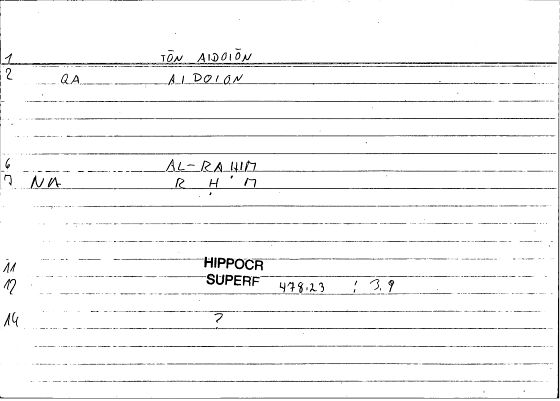 1 TŌN AIDOIŌN
2 QA AIDOION
6 AL-RAḤIM
7 NA R Ḥ M
11 HIPPOCR
12 SUPERF 478.23 : 3.9
14 ?